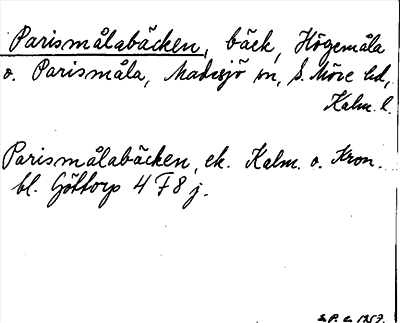 Parismålabäcken, bäck, Högemåla
o. Parismåla, Madesjö sn, S. Möre hd,
Kalm. l.
Parismålabäcken, ek. Kalm. o. Kron.
bl. Göttorp 4 F 8 j.